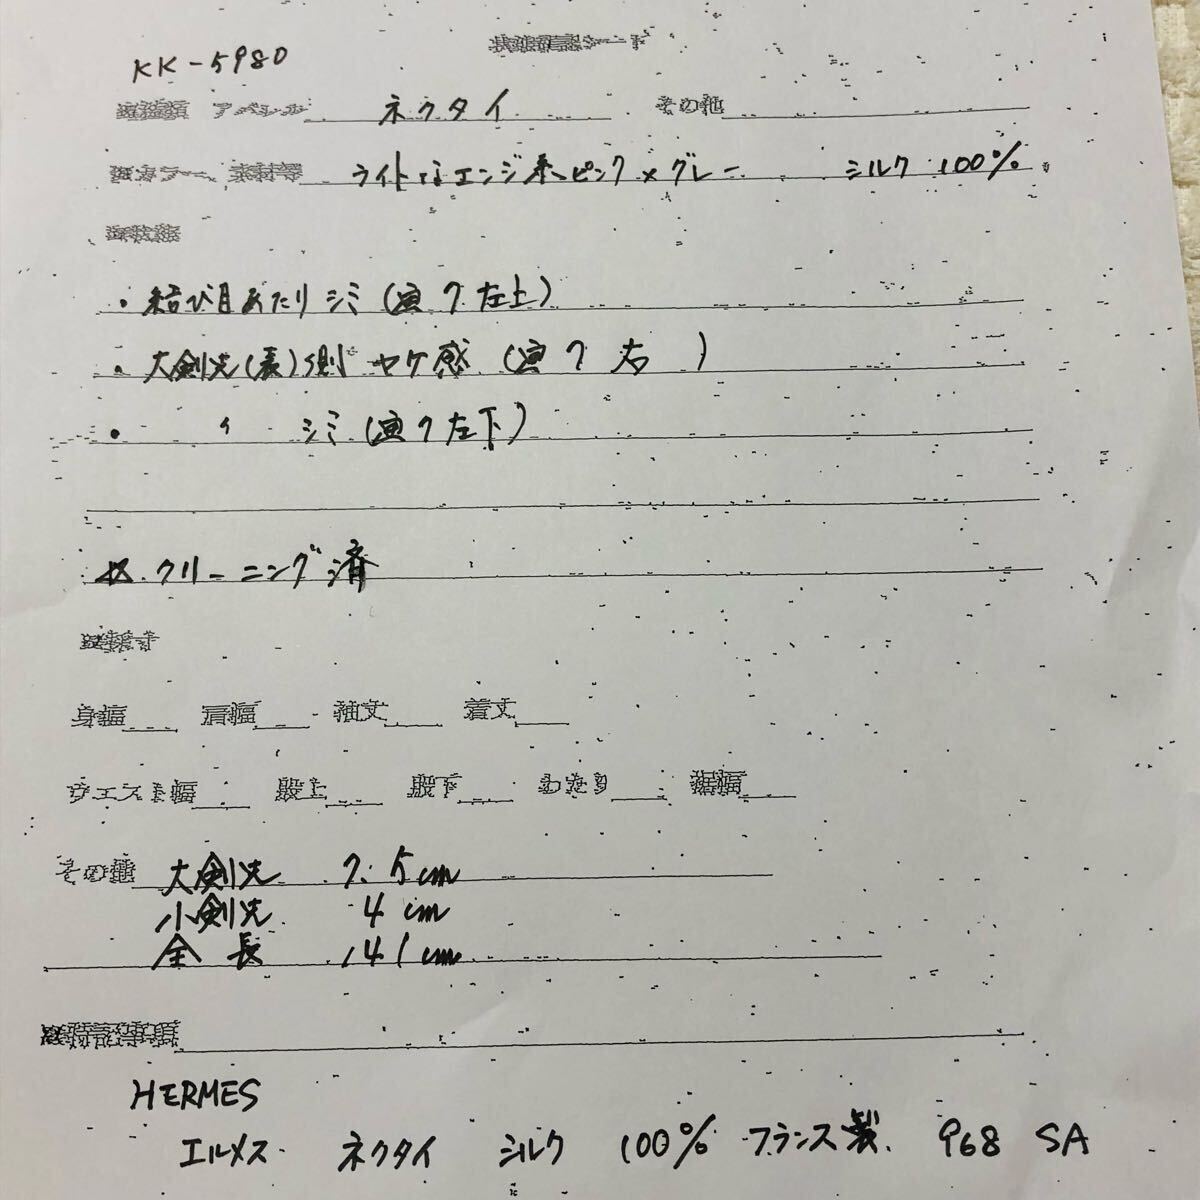 状態確認シート
KK-5980
アパレル ネクタイ その他
カラー、素材等 ライトなエンジ系ピンク×グレー シルク 100%
・結び目あたりシミ(画像左上)
・大剣先(表)側 ヤケ感(画像右)
・〃 シミ(画像左下)
クリーニング済
身幅 肩幅 袖丈 着丈
ウエスト幅 股上 股下 わたり 裾幅
その他 大剣先 7.5cm
小剣先 4cm
全長 141cm
特記事項
HERMES
エルメス ネクタイ シルク 100% フランス製 968 SA